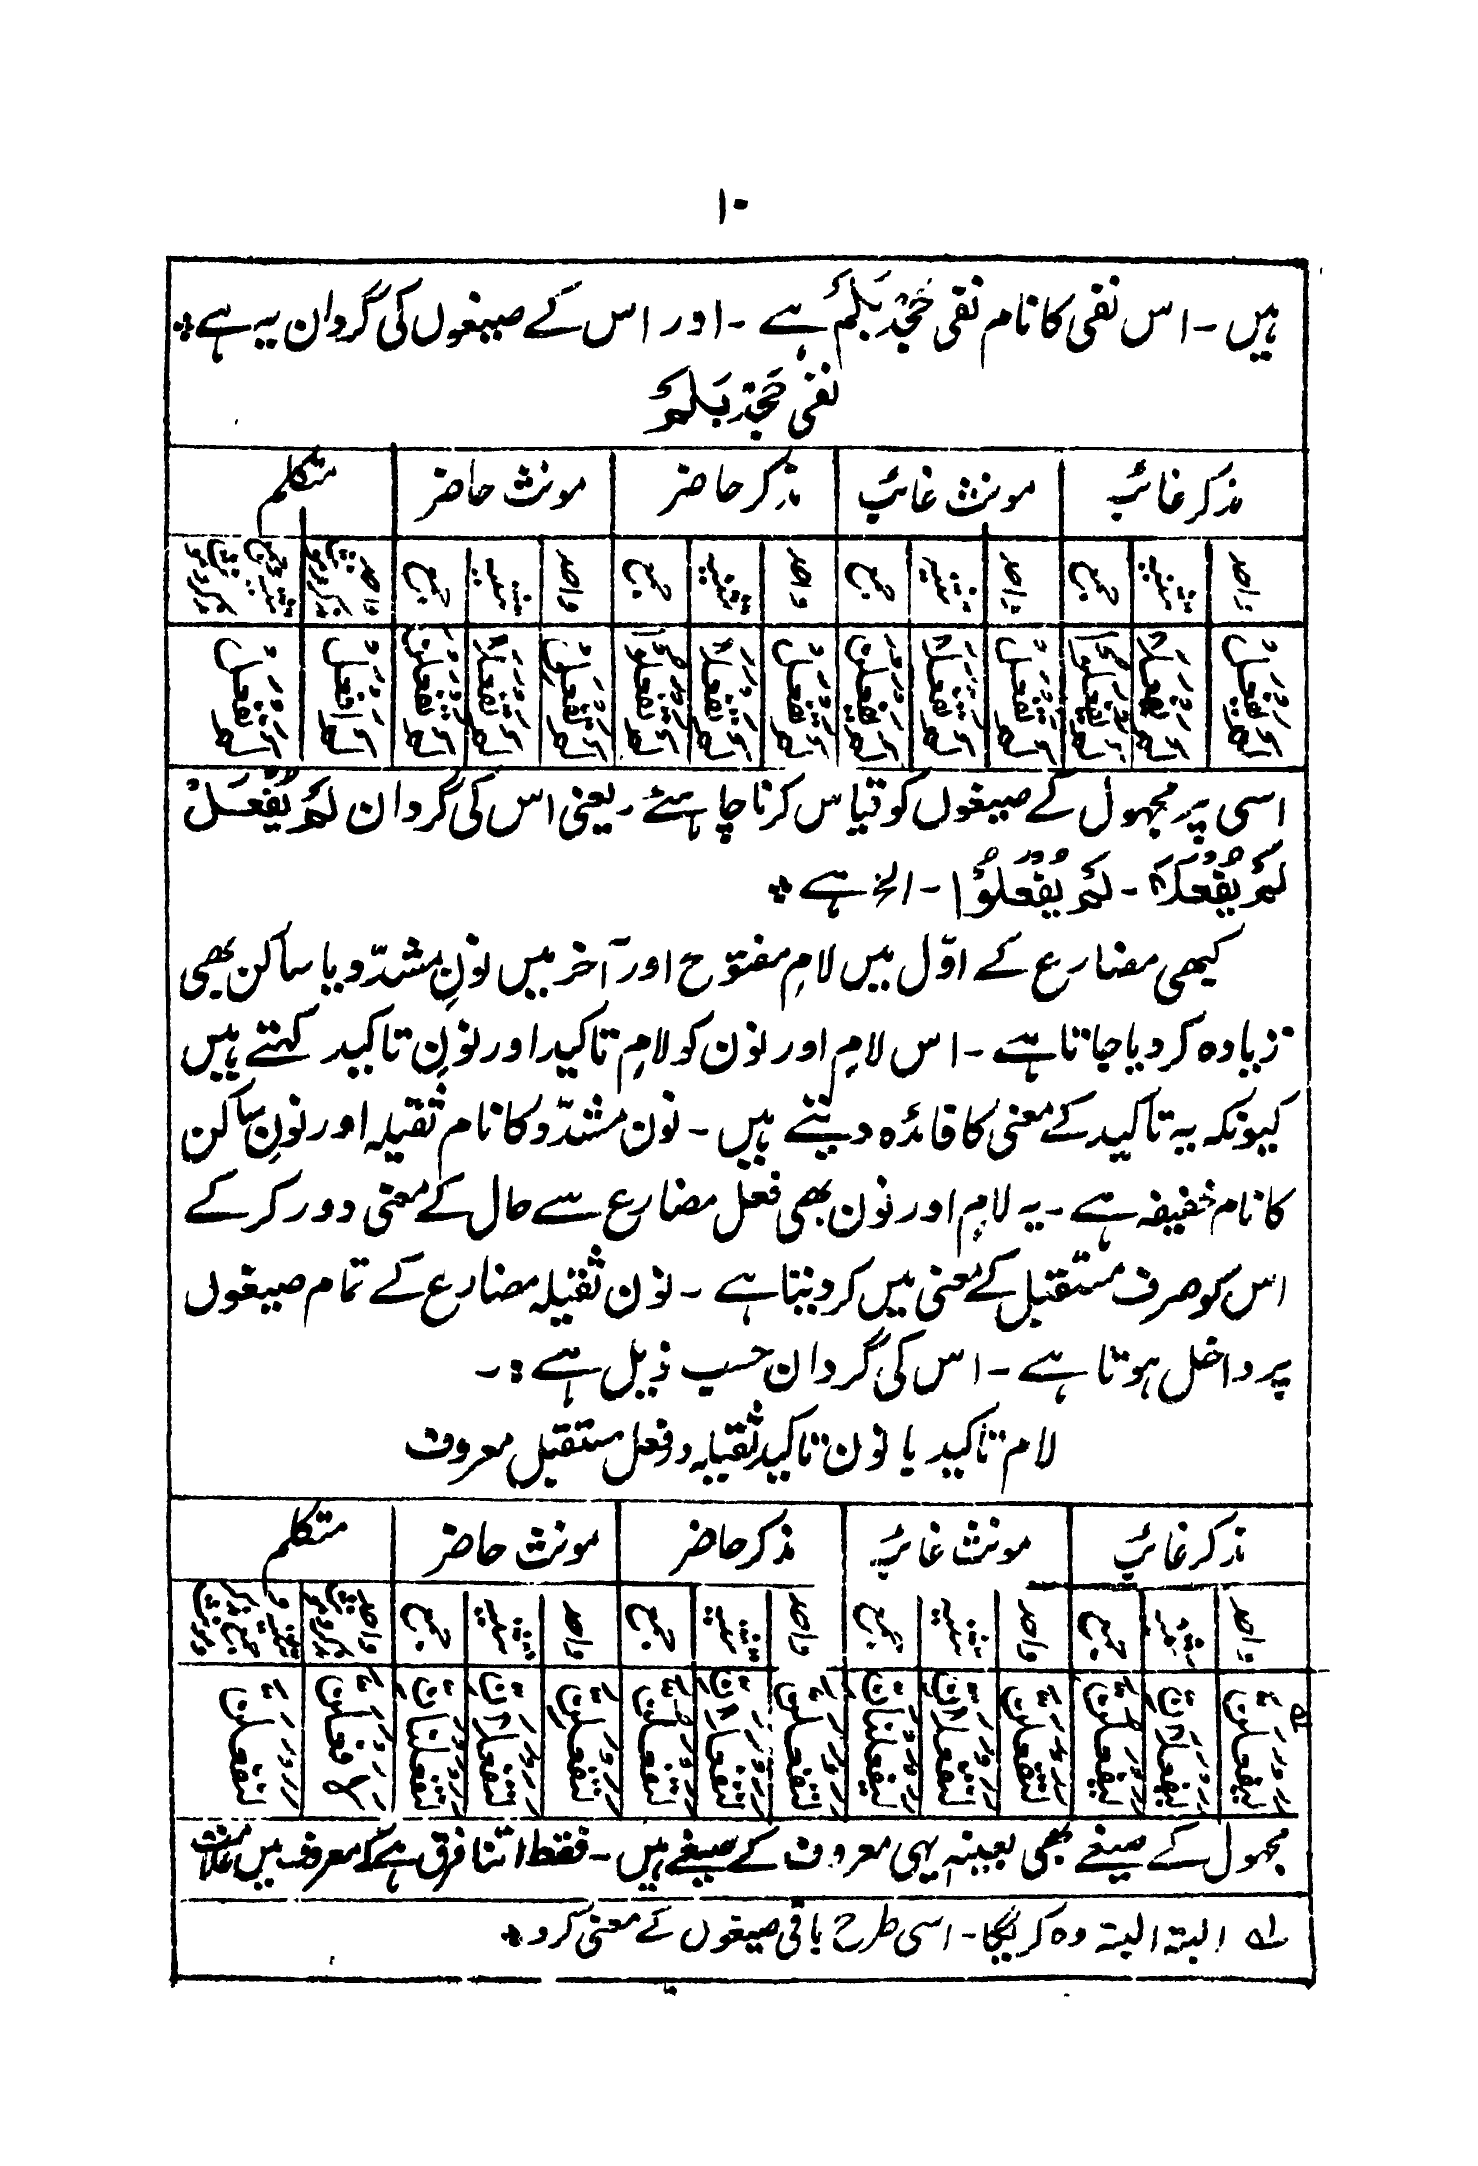 ۱۰
ہیں ۔ اس نفی کا نام نفی حَجْد بَلَمْ ہے ۔ اور اس کے صیغوں کی گردان یہ ہے ٭
نفی حَجْد بَلَمْ
مذکر غائب مونث غائب مذکر حاضر مونث حاضر متکلم
واحد تثنیہ جمع واحد تثنیہ جمع واحد تثنیہ جمع واحد تثنیہ جمع واحد مذکر و مونث تثنیہ و جمع مذکر و مونث
لَمْ یَفْعَلْ لَمْ یَفْعَلَا لَمْ یَفْعَلُوْا لَمْ تَفْعَلْ لَمْ تَفْعَلَا لَمْ یَفْعَلْنَ لَمْ تَفْعَلْ لَمْ تَفْعَلَا لَمْ تَفْعَلُوْا لَمْ تَفْعَلِیْ لَمْ تَفْعَلَا لَمْ تَفْعَلْنَ لَمْ اَفْعَلْ لَمْ نَفْعَلْ
اسی پر مجہول کے صیغوں کو قیاس کرنا چاہئے ۔ یعنی اس کی گردان لَمْ یُفْعَلْ
لَمْ یُفْعَلَا ۔ لَمْ یُفْعَلُوْا ۔ الخ ہے ٭
کبھی مضارع کے اوّل میں لامِ مفتوح اور آخر میں نونِ مشدّد یا ساکن بھی
زیادہ کر دیا جاتا ہے ۔ اس لامِ اور نون کو لامِ تاکید اور نونِ تاکید کہتے ہیں
کیونکہ یہ تاکید کے معنی کا فائدہ دیتے ہیں ۔ نون مشدّد کا نام ثقیلہ اور نونِ ساکن
کا نام خفیفہ ہے ۔ یہ لامِ اور نون بھی فعل مضارع سے حال کے معنی دور کر کے
اس کو صرف مستقبل کے معنی میں کر دیتا ہے ۔ نون ثقیلہ مضارع کے تمام صیغوں
پر داخل ہوتا ہے ۔ اس کی گردان حسب ذیل ہے :۔
لام تاکید با نون تاکید ثقیلہ د فعل مستقبل معروف
مذکر غائب مونث غائب مذکر حاضر مونث حاضر متکلم
واحد تثنیہ جمع واحد تثنیہ جمع واحد تثنیہ جمع واحد تثنیہ جمع واحد مذکر و مونث تثنیہ و جمع مذکر و مونث
لَیَفْعَلَنَّ لہ لَیَفْعَلَانِّ لَیَفْعَلُنَّ لَتَفْعَلَنَّ لَتَفْعَلَانِّ لَیَفْعَلْنَانِّ لَتَفْعَلَنَّ لَتَفْعَلَانِّ لَتَفْعَلُنَّ لَتَفْعَلِنَّ لَتَفْعَلَانِّ لَتَفْعَلْنَانِّ لَاَفْعَلَنَّ لَنَفْعَلَنَّ
مجہول کے صیغے بھی بعینہٖ یہی معروف کے صیغے ہیں ۔ فقط اتنا فرق ہے کہ معروف میں علامت
لہ البتہ البتہ وہ کریگا ۔ اسی طرح باقی صیغوں کے معنی کرو ٭